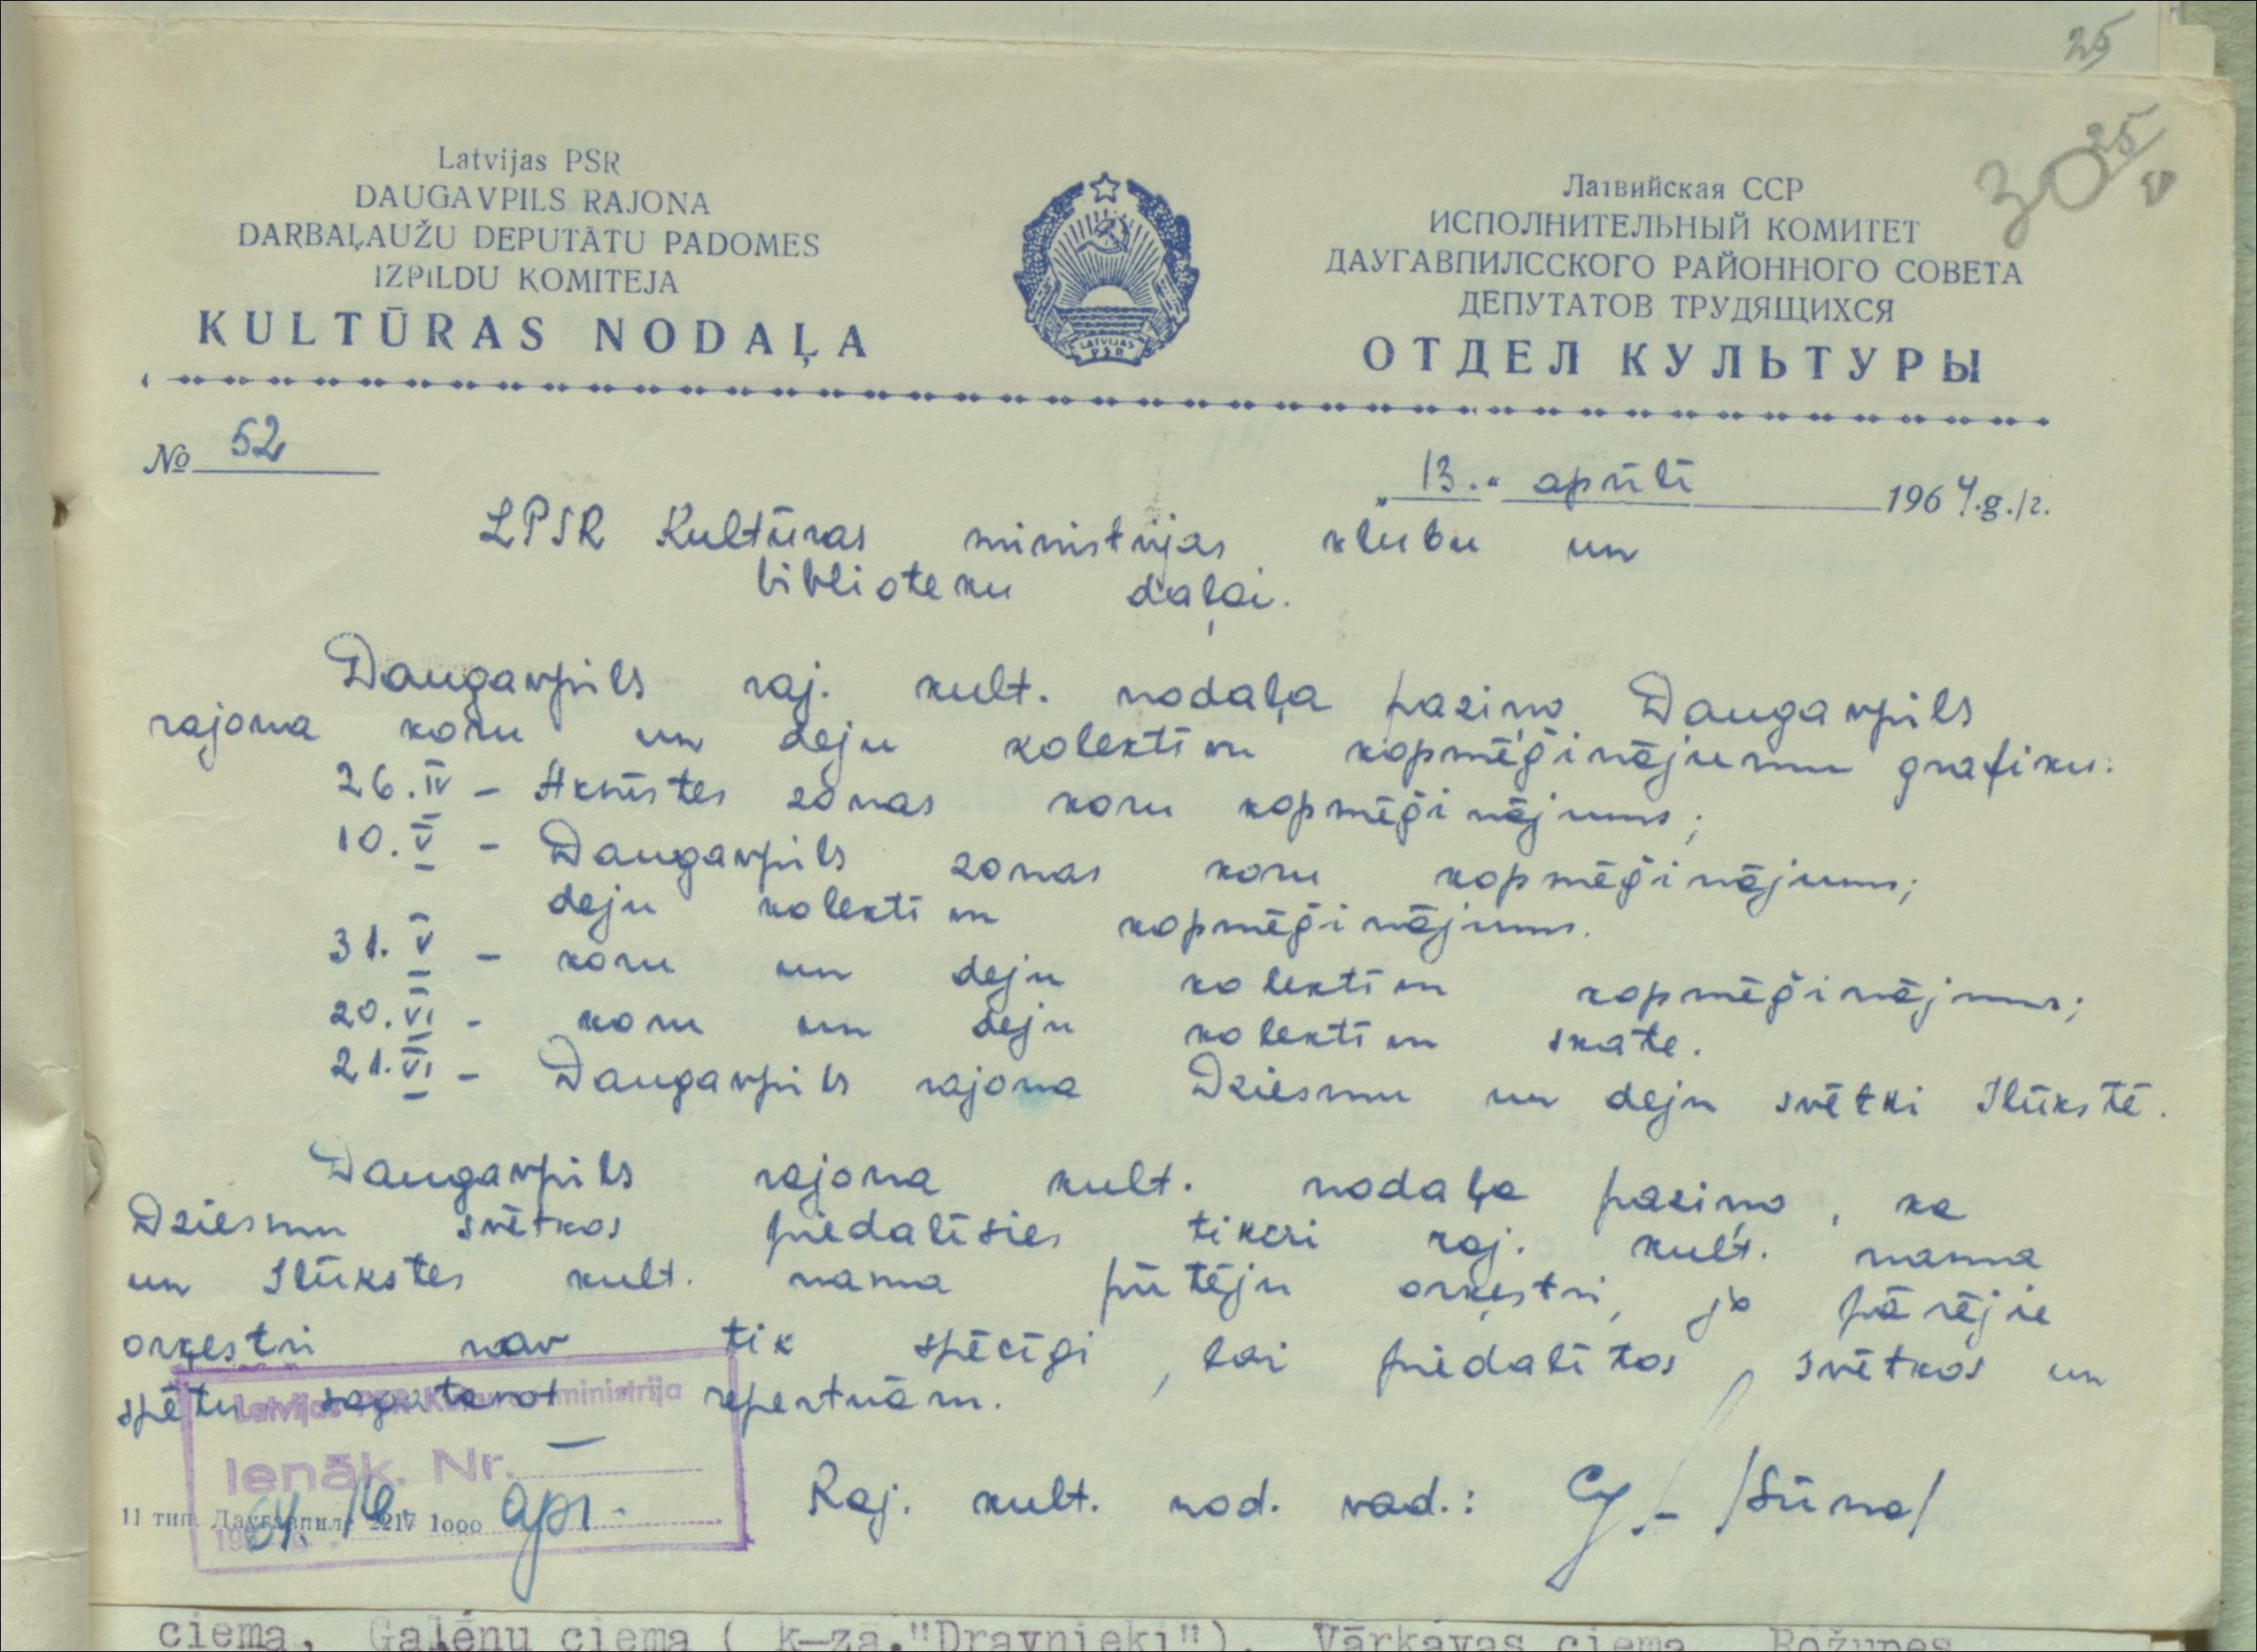 25
25
30
Latvijas PSR
DAUGAVPILS RAJONA
DARBAĻAUŽU DEPUTĀTU PADOMES
IZPILDU KOMITEJA
KULTŪRAS NODAĻA
LATVIJAS
PSR
Латвийская ССР
ИСПОЛНИТЕЛЬНЫЙ КОМИТЕТ
ДАУГАВПИЛССКОГО РАЙОННОГО СОВЕТА
ДЕПУТАТОВ ТРУДЯЩИХСЯ
ОТДЕЛ КУЛЬТУРЫ
№ 52
„13.“ aprīlī 1964.g./г.
LPSR Kultūras ministrijas klubu un
biblioteku daļai.
Daugavpils raj. kult. nodaļa paziņo Daugavpils
rajona koru un deju kolektīvu kopmēģinājumu grafiku:
26.IV – Aknīstes zonas koru kopmēģinājums;
10.V – Daugavpils zonas koru kopmēģinājums;
deju kolektīvu kopmēģinājums.
31.V – koru un deju kolektīvu kopmēģinājums;
20.VI – koru un deju kolektīvu skate.
21.VI – Daugavpils rajona Dziesmu un deju svētki Ilūkstē.
Daugavpils rajona kult. nodaļa paziņo, ka
Dziesmu svētkos piedalīsies tikai raj. kult. nama
un Ilūkstes kult. nama pūtēju orķestri, jo pārējie
orķestri nav tik spēcīgi, lai piedalītos svētkos un
spētu sagatavot repertuāru.
Latvijas PSR Kultūras ministrija
Ienāk. Nr. —
64. 16. apr.
11 тип. Даугавпилс 2217 1000
Raj. kult. nod. vad.: /Sūna/
ciema, Galēnu ciema ( k-za "Dravnieki"), Vārkavas ciema, Rožupes